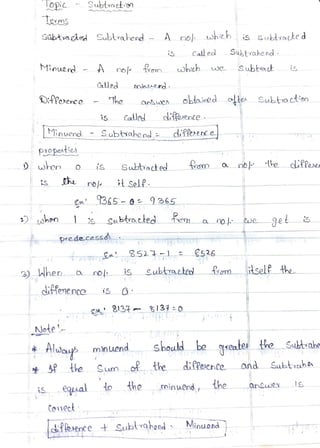 Topic - Subtraction
Terms
Subtrahend - A no/. which is subtracted
is called Subtrahend.
Minuend - A no/. from which we Subtract is
called minuend.
Difference - The answer obtained after Subtraction
is called difference.
Minuend - Subtrahend = difference
properties
1) when 0 is Subtracted from a no/. the differe
is the no/. itself.
ex: 9365 - 0 = 9365
2) when 1 is Subtracted from a no/. we get is
predecessor
ex: 8527 - 1 = 8526
3) When a no/. is subtracted from itself the
difference is 0.
ex: 8137 - 8137 = 0
Note:-
* Always minuend should be greater the Subtrahe
* If the Sum of the difference and Subtrahen
is equal to the minuend, the answer is
correct
difference + Subtrahend = Minuend